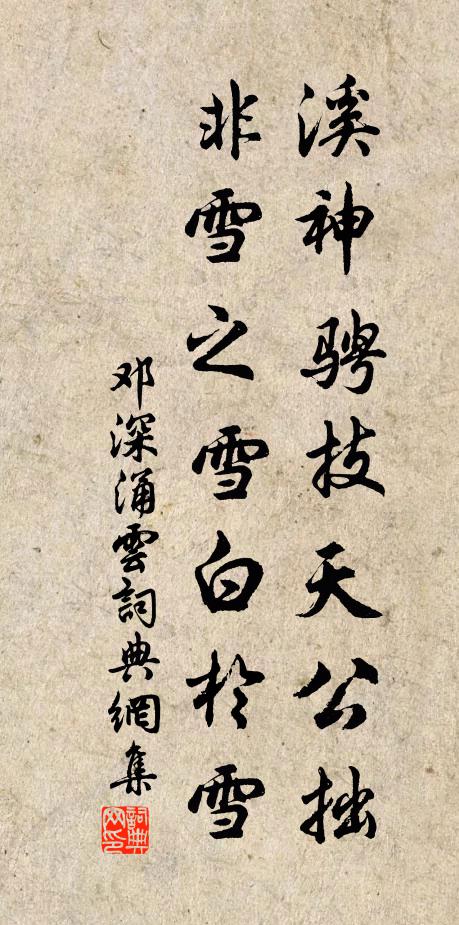 溪神骋技天公拙
非雪之雪白於雪
邓深涌雲詞典網集
詞典網印